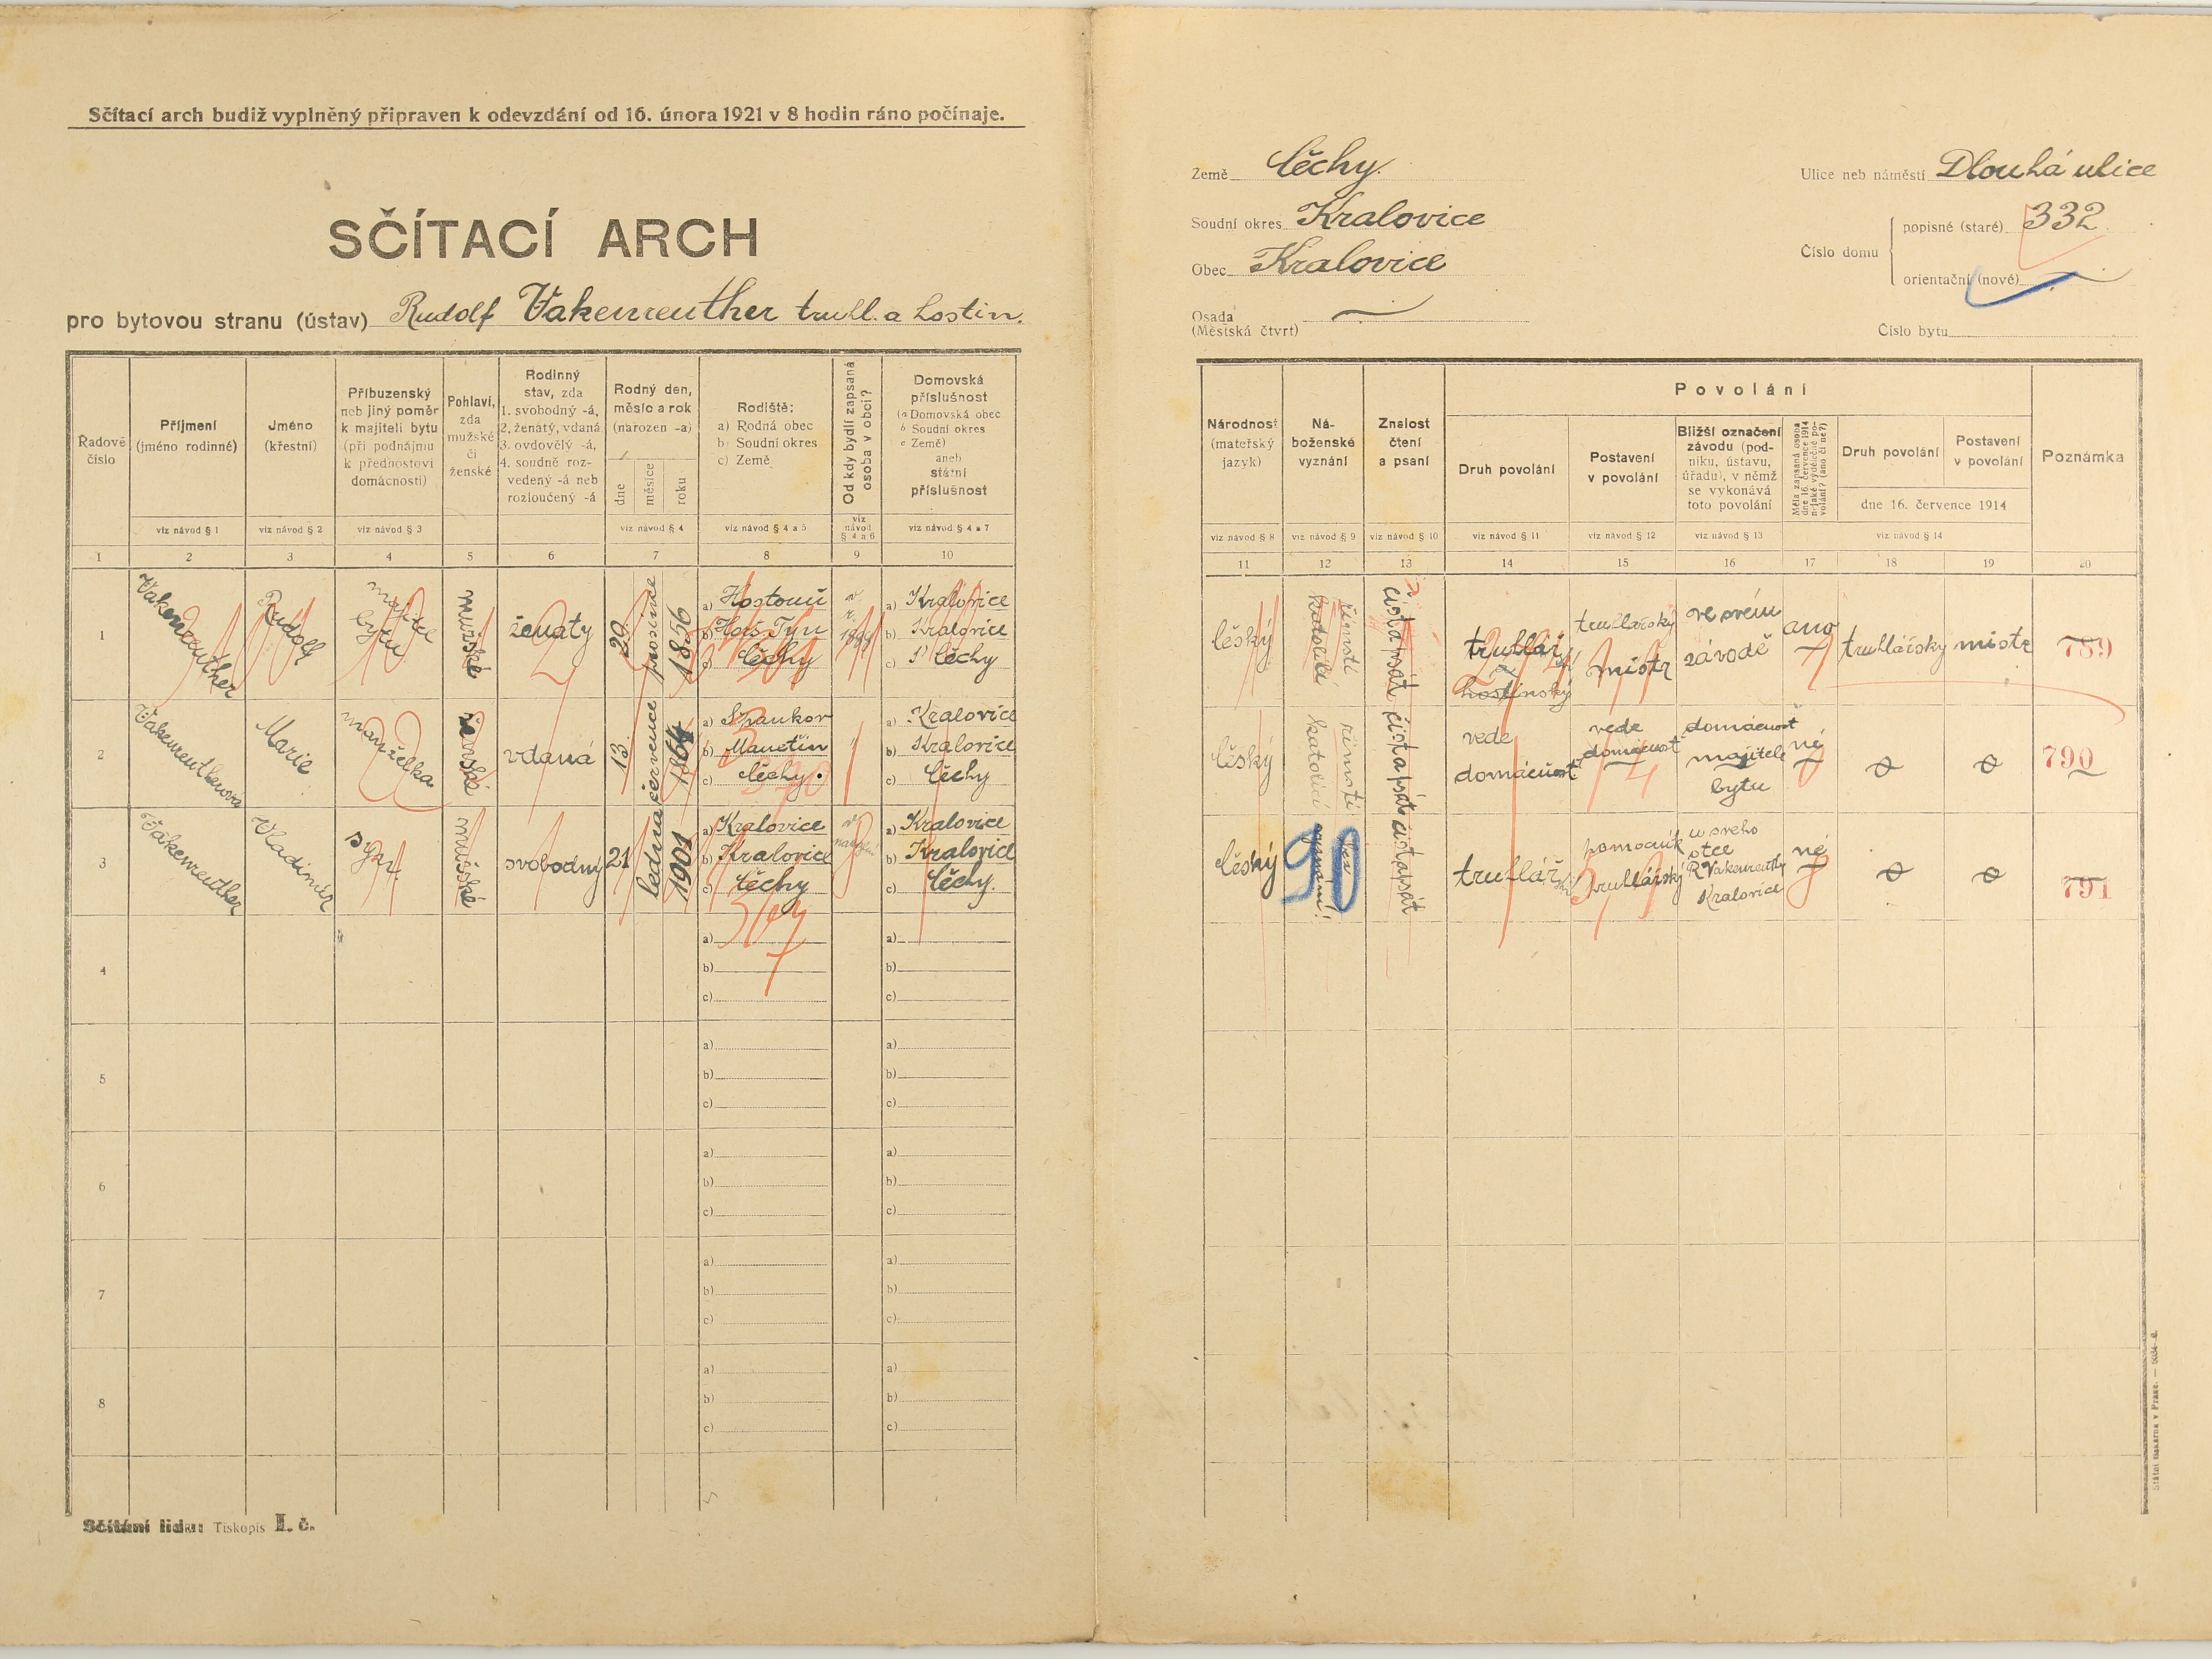 Sčítací arch budiž vyplněný připraven k odevzdání od 16. února 1921 v 8 hodin ráno počínaje.
SČÍTACÍ ARCH
pro bytovou stranu (ústav) Rudolf Vakenreuther truhl. a hostin.
Země Čechy.
Soudní okres Kralovice
Obec Kralovice
Osada
(Městská čtvrt)
Ulice neb náměstí Dlouhá ulice
Číslo domu
popisné (staré) 332
orientační (nové)
Číslo bytu
Řadové číslo
Příjmení (jméno rodinné)
Jméno (křestní)
Příbuzenský neb jiný poměr k majiteli bytu (při podnájmu k přednostovi domácnosti)
Pohlaví, zda mužské či ženské
Rodinný stav, zda 1. svobodný -á, 2. ženatý, vdaná 3. ovdovělý -á, 4. soudně rozvedený -á neb rozloučený -á
Rodný den, měsíc a rok (narozen -a)
dne měsíce roku
Rodiště: a) Rodná obec b) Soudní okres c) Země
Od kdy bydlí zapsaná osoba v obci?
Domovská příslušnost (a Domovská obec b Soudní okres c Země) aneb státní příslušnost
viz návod § 1 viz návod § 2 viz návod § 3 viz návod § 4 viz návod § 4 a 5 viz návod § 4 a 6 viz návod § 4 a 7
1 2 3 4 5 6 7 8 9 10
Národnost (mateřský jazyk)
Náboženské vyznání
Znalost čtení a psaní
Povolání
Druh povolání
Postavení v povolání
Bližší označení závodu (podniku, ústavu, úřadu), v němž se vykonává toto povolání
Měla zapsaná osoba dne 16. července 1914 nějaké výdělečné povolání? (ano či ne?)
Druh povolání
Postavení v povolání
dne 16. července 1914
Poznámka
viz návod § 8 viz návod § 9 viz návod § 10 viz návod § 11 viz návod § 12 viz návod § 13 viz návod § 14
11 12 13 14 15 16 17 18 19 20
1 Vakenreuther Rudolf majitel bytu mužské ženatý 29. prosince 1856
a) Hostouň
b) Horš. Týn
c) Čechy
a) Kralovice
b) Kralovice
c) Čechy
český římsti katolicí číst a psát truhlář hostinský truhlářský mistr ve svém závodě ano truhlářský mistr 789
2 Vakenreutherová Marie manželka ženské vdaná 13. července 1864
a)
b) Manetín
c) Čechy.
a) Kralovice
b) Kralovice
c) Čechy
český římsti katolicí číst a psát vede domácnost vede domácnost domácnost majitele bytu né 790
3 Vakenreuther Vladimír syn mužské svobodný 21 ledna 1901
a) Kralovice
b) Kralovice
c) Čechy
a) Kralovice
b) Kralovice
c) Čechy.
český bez vyznání! 90 číst a psát truhlář pomocník truhlářský u svého otce R Vakenreuthr Kralovice né 791
4
a)
b)
c)
a)
b)
c)
5
a)
b)
c)
a)
b)
c)
6
a)
b)
c)
a)
b)
c)
7
a)
b)
c)
a)
b)
c)
8
a)
b)
c)
a)
b)
c)
Sčítání lidu: Tiskopis I. č.